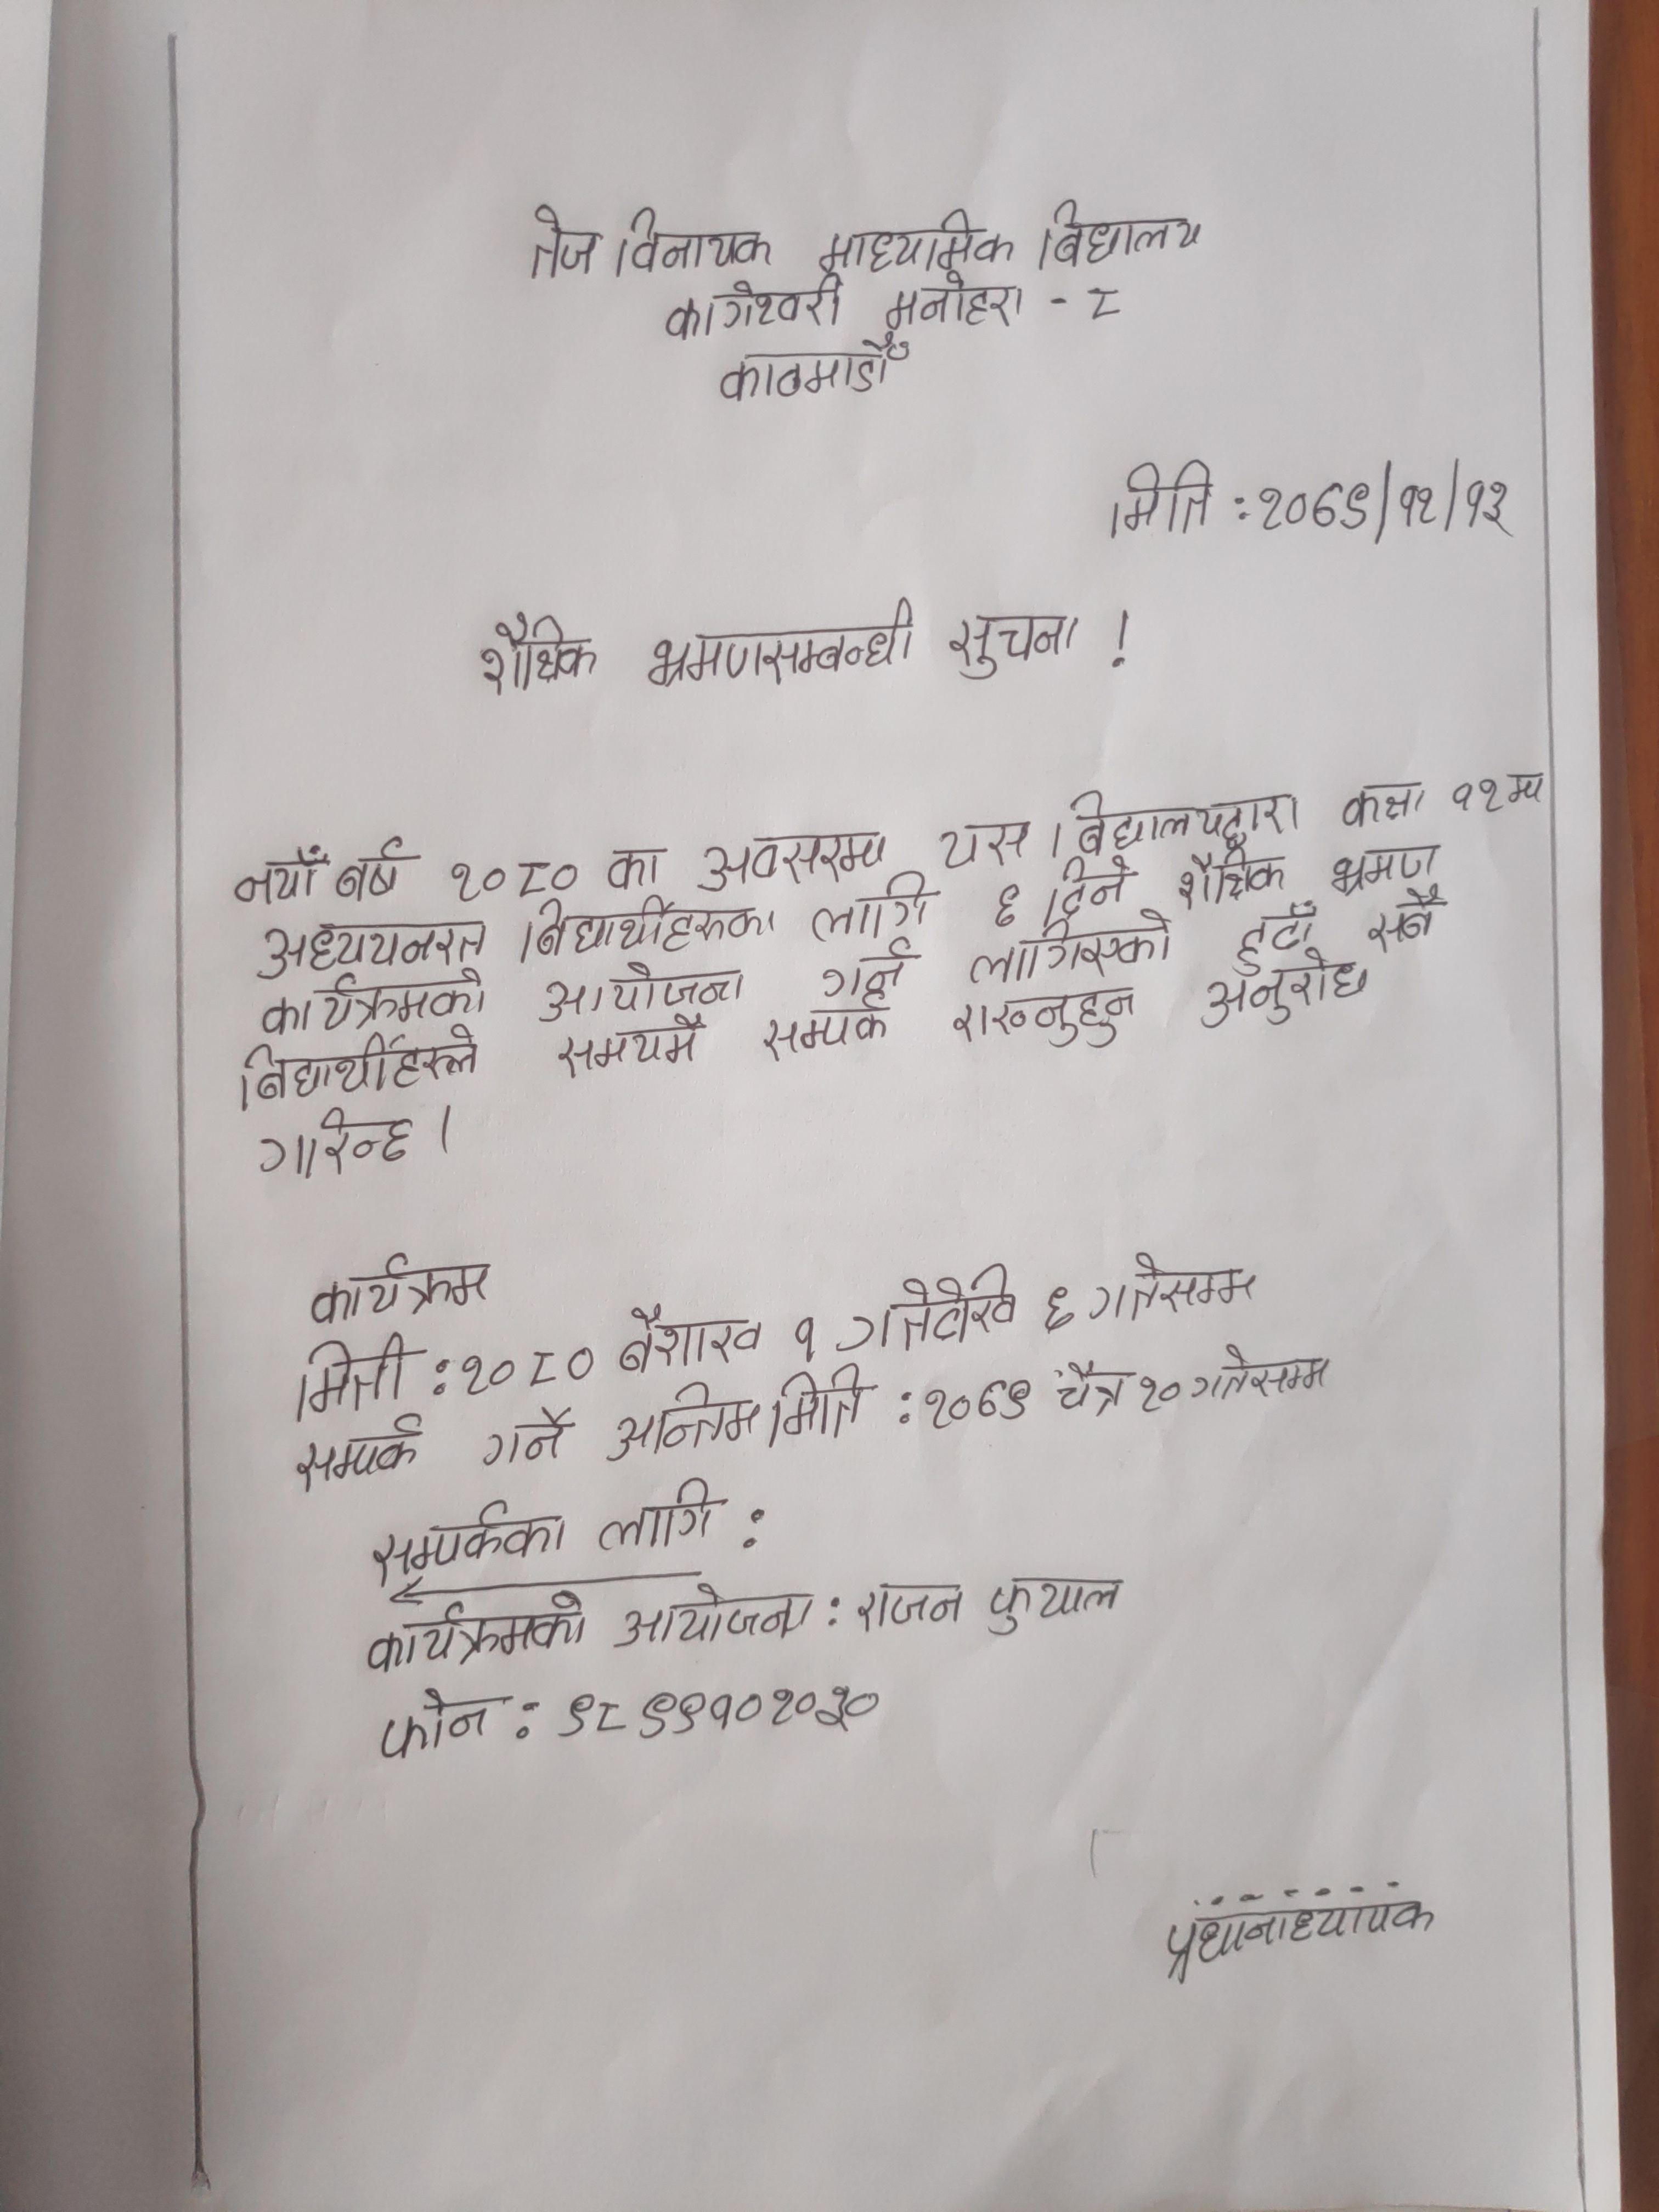 तेज विनायक माध्यामिक बिद्यालय
कागेश्वरी मनोहरा - ८
काठमाडौँ
मिति : २०७९/१२/१३
शैक्षिक भ्रमणसम्बन्धी सुचना !
नयाँ बर्ष २०८० का अवसरमा यस बिद्यालयद्वारा कक्षा १२मा
अध्ययनरत बिद्यार्थीहरुका लागि ६ दिने शैक्षिक भ्रमण
कार्यक्रमको आयोजना गर्न लागिएको हुदाँ सबै
बिद्यार्थीहरुले समयमै सम्पर्क राख्नुहुन अनुरोध
गरिन्छ ।
कार्यक्रम
मिती : २०८० बैशाख १ गतेदेखि ६ गतेसम्म
सम्पर्क गर्ने अन्तिम मिति : २०७९ चैत्र २० गतेसम्म
सम्पर्कका लागि :
कार्यक्रमको आयोजना : राजन फुयाल
फोन : ९८९९१०२०३०
प्रधानाध्यापक